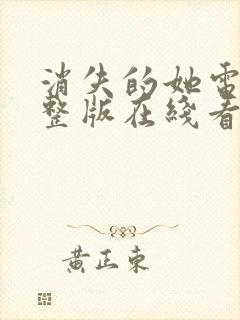 消失的她電
整版在綫看
黃正東